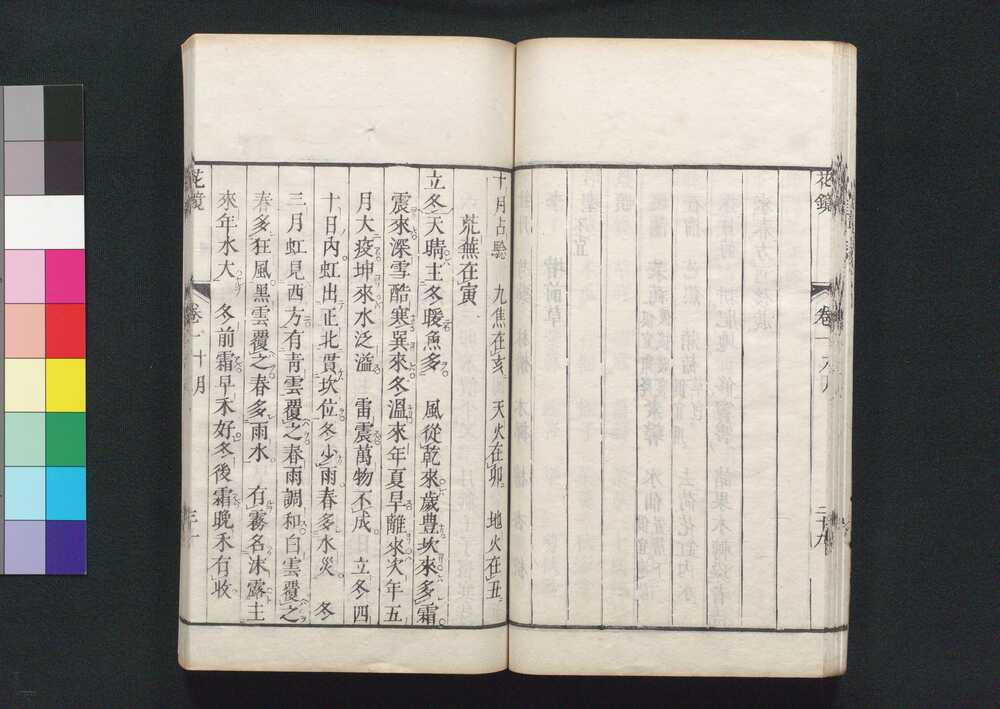 花鏡 卷一 九月 二十九
十月占驗 九焦在亥 天火在卯 地火在丑
荒蕪在寅
立冬天晴主冬暖魚多 風從乾來歲豊坎來多霜
震來深雪酷寒巽來冬溫來年夏旱離來次年五
月大疫坤來水泛溢 雷震萬物不成 立冬四
十日內虹出正北貫坎位冬少雨春多水災 冬
三月虹見西方有青雲覆之春雨調和白雲覆之
春多狂風黑雲覆之春多雨水 有霧名沐露主
來年水大 冬前霜早禾好冬後霜晚禾有收
花鏡 卷一 十月